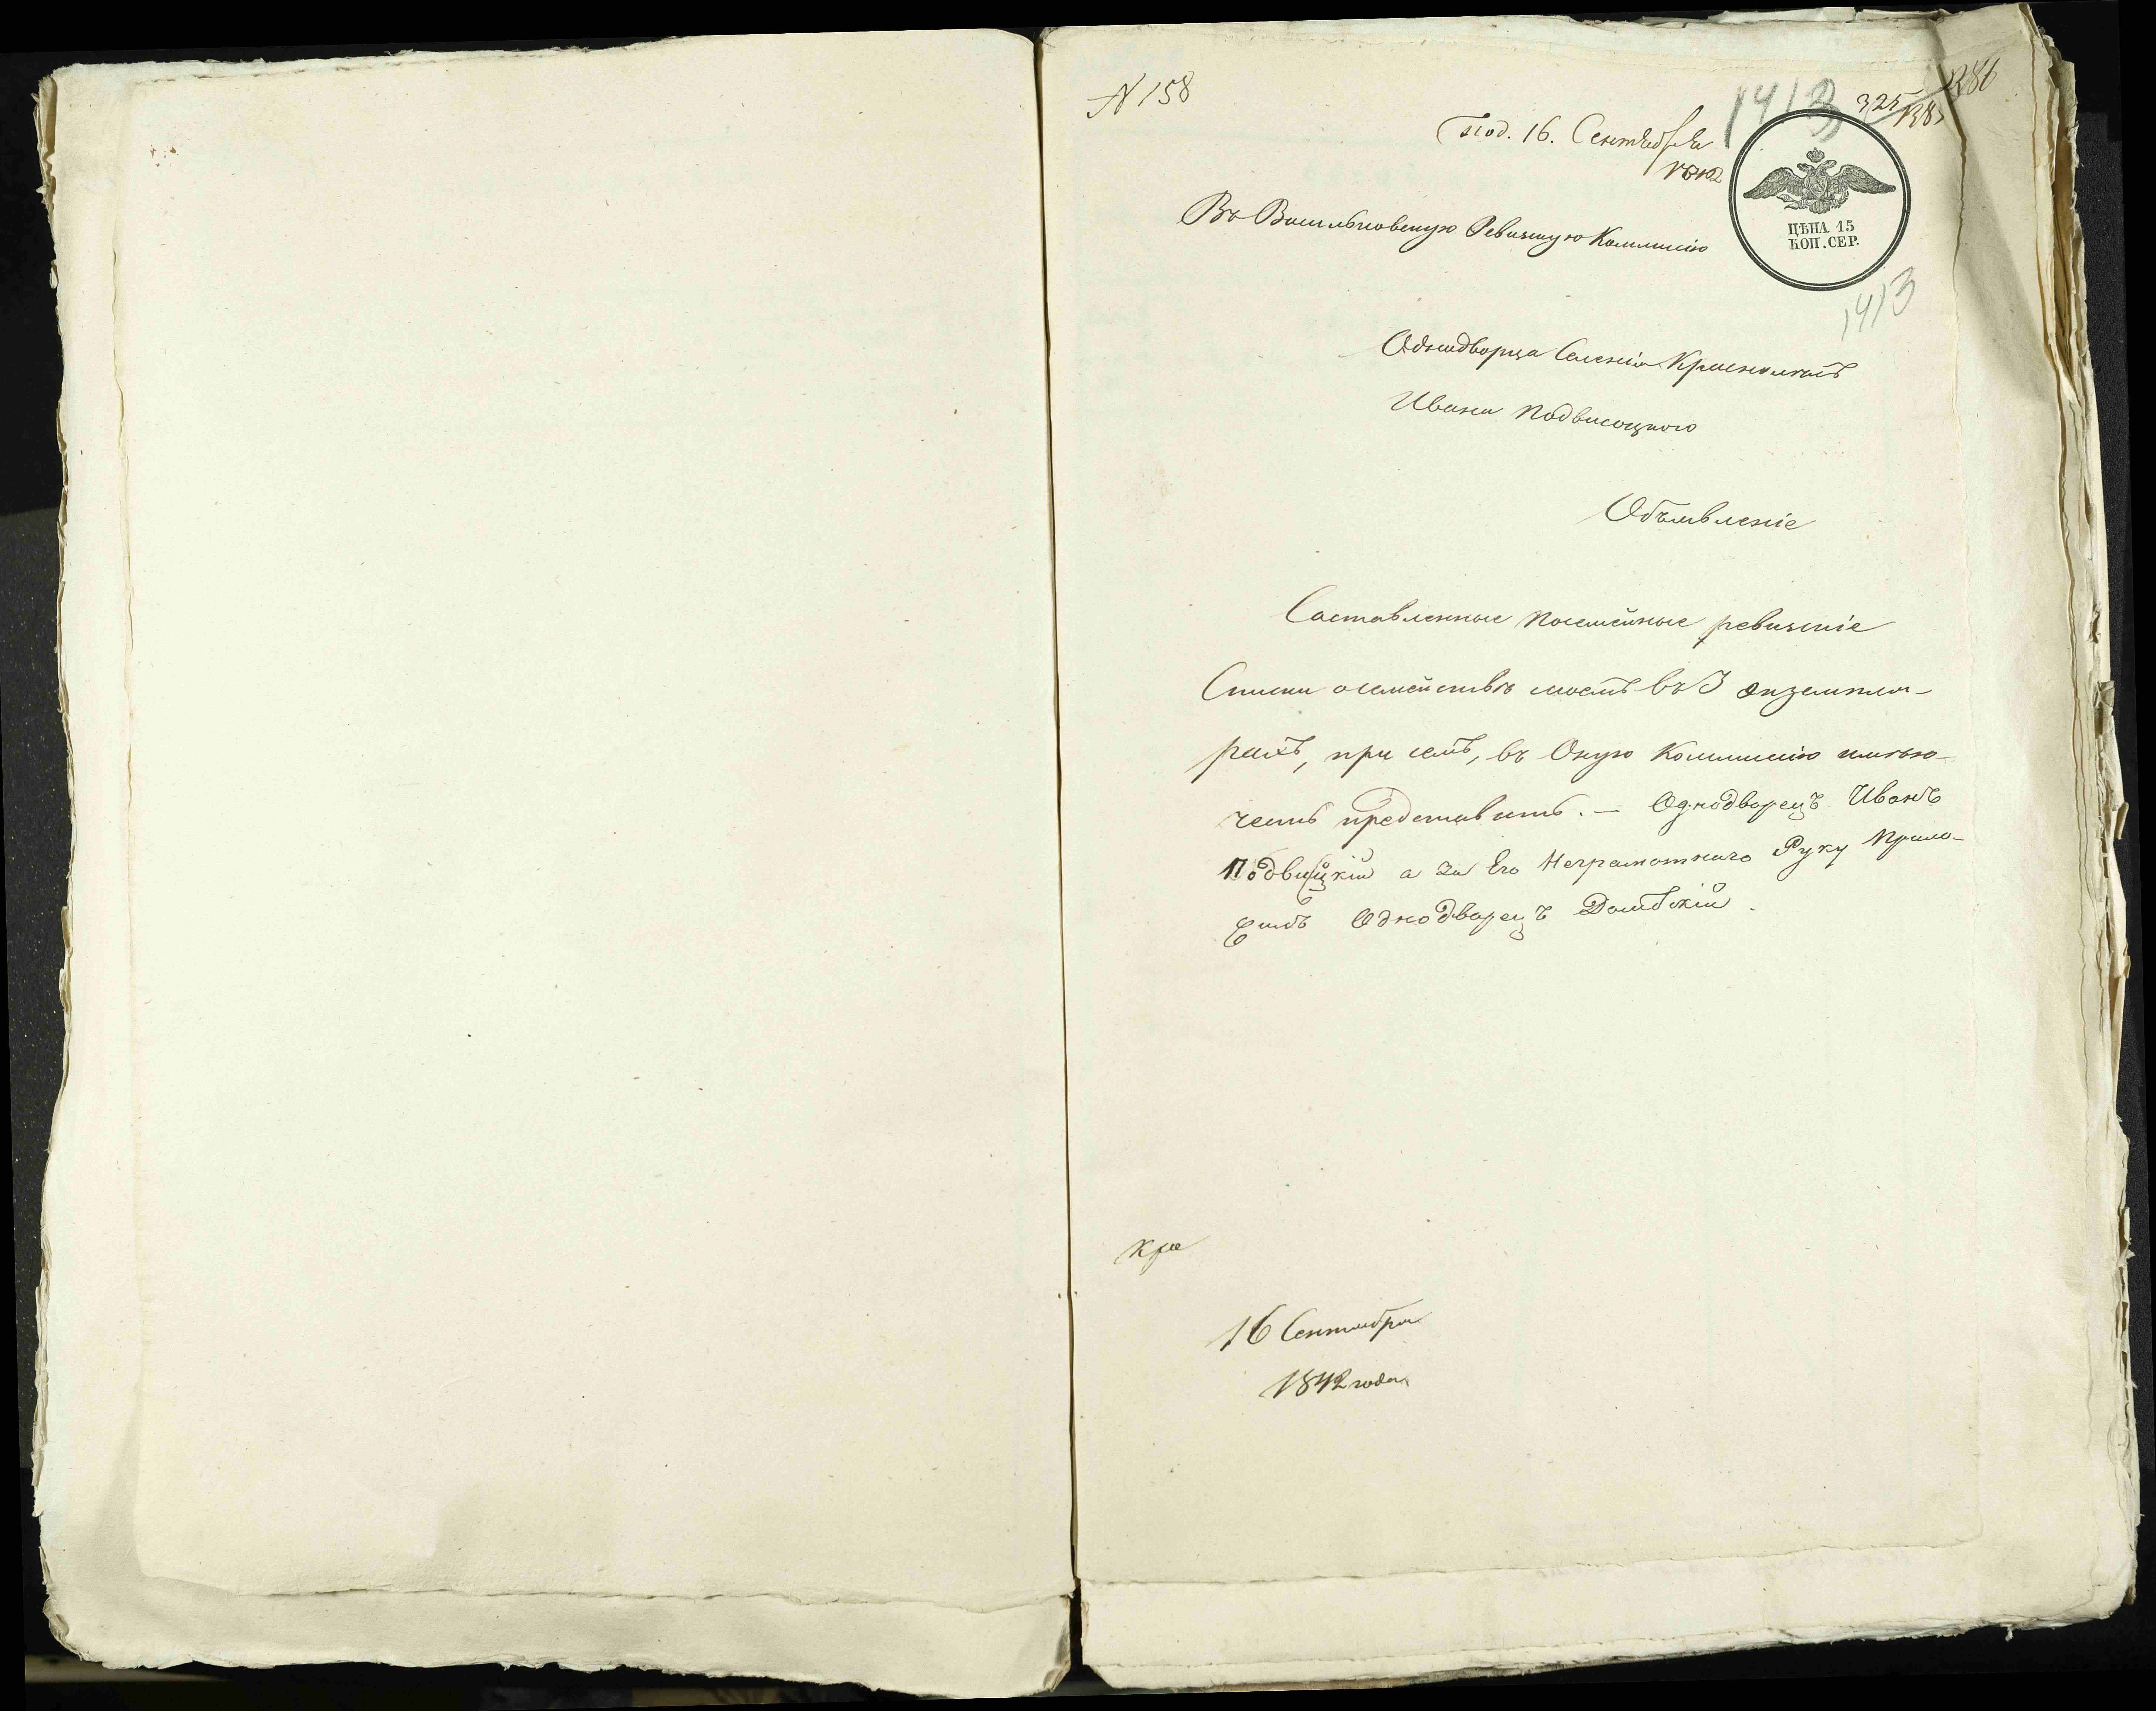 N 158
1413
325
1286
Под. 16. Сентября
1842
ЦѢНА 15
КОП. СЕР.
Въ Васильковскую Ревизкую Коммисію
1413
Однодворца Селенія
Ивана Подвисоцкого
Объявленіе
Составленные посемейные ревизкіе
Списки о семействѣ моемъ въ 3 экземпля-
рахъ, при семъ, въ Оную Коммисію имѣю
честь представить. — Однодворецъ Иванъ
а За Его Неграмотнаго Руку Прило-
Однодворецъ Домбскій.
Кра
16 Сентября
1842 года